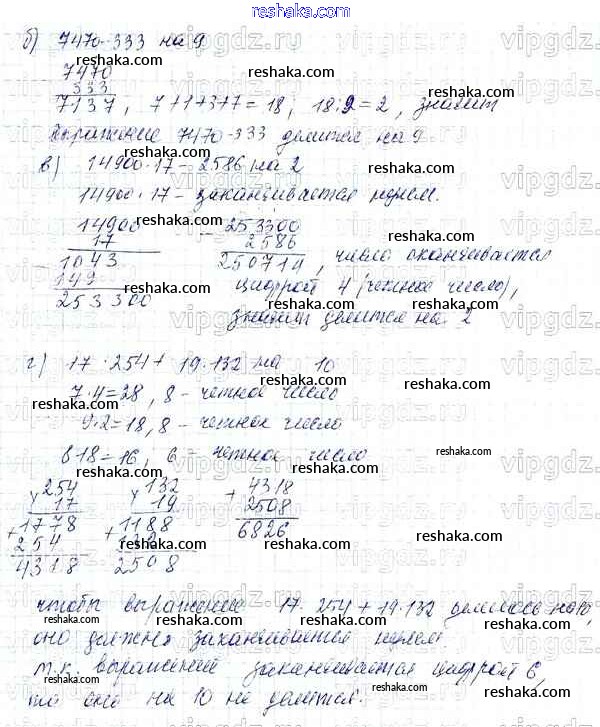 reshaka.com
б) 7470-333 на 9
7470
333
7137, 7+1+3+7=18; 18:9=2, значит
выражение 7470-333 делится на 9.
в) 14900·17-2586 на 2
14900·17 - заканчивается нулем.
14900
17
1043
149
253300
- 253300
2586
250714, число оканчивается
цифрой 4 (четное число),
значит делится на 2
г) 17·254+19·132 на 10
7·4=28, 8 - четное число
9·2=18, 8 - четное число
8+8=16, 6 - четное число
254
17
+ 1778
254
4318
132
19
+ 1188
132
2508
+ 4318
2508
6826
чтобы выражение 17·254+19·132 делилось на 10,
оно должно заканчиваться нулем.
т.к. выражение заканчивается цифрой 6,
то оно на 10 не делится.
reshaka.com
vipgdz.ru